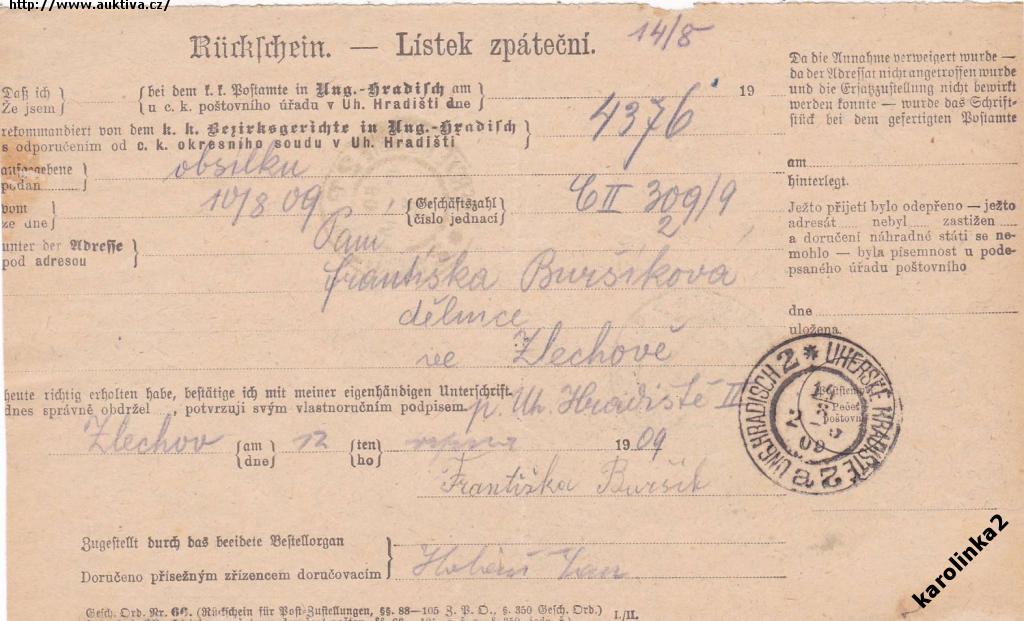 http://www.auktiva.cz/
Rückschein. — Lístek zpáteční.
14/8
Daß ich
Že jsem
bei dem k. k. Postamte in Ung.-Hradisch am
u c. k. poštovního úřadu v Uh. Hradišti dne
19
4376
rekommandiert von dem k. k. Bezirksgerichte in Ung.-Hradisch
s odporučením od c. k. okresního soudu v Uh. Hradišti
aufgegebene
podán
obsílku
vom
ze dne
10/8 09
Geschäftszahl
číslo jednací
C II 309/9
2
unter der Adresse
pod adresou
Paní
Františka Buršíkova
dělnice
ve Zlechově
p. Uh. Hradiště II
heute richtig erhalten habe, bestätige ich mit meiner eigenhändigen Unterschrift.
dnes správně obdržel , potvrzuji svým vlastnoručním podpisem.
Zlechov
am
dne
12
ten
ho
srpna
1909
Františka Buršik
Zugestellt durch das beeidete Bestellorgan
Doručeno přísežným zřízencem doručovacím
Jan
Gesch. Ord. Nr. 66. (Rückschein für Post-Zustellungen, §§. 88—105 Z. P. O., §. 350 Gesch. Ord.)
I./II.
Da die Annahme verweigert wurde —
da der Adressat nicht angetroffen wurde
und die Ersatzzustellung nicht bewirkt
werden konnte — wurde das Schrift-
stück bei dem gefertigten Postamte
am
hinterlegt.
Ježto přijetí bylo odepřeno — ježto
adresát nebyl zastižen
a doručení náhradné státi se ne-
mohlo — byla písemnost u pode-
psaného úřadu poštovního
dne
uložena.
Pečeť
poštovní
UNG. HRADISCH 2 * UHERSKÉ HRADIŠTĚ 2
a
09
karolinka2